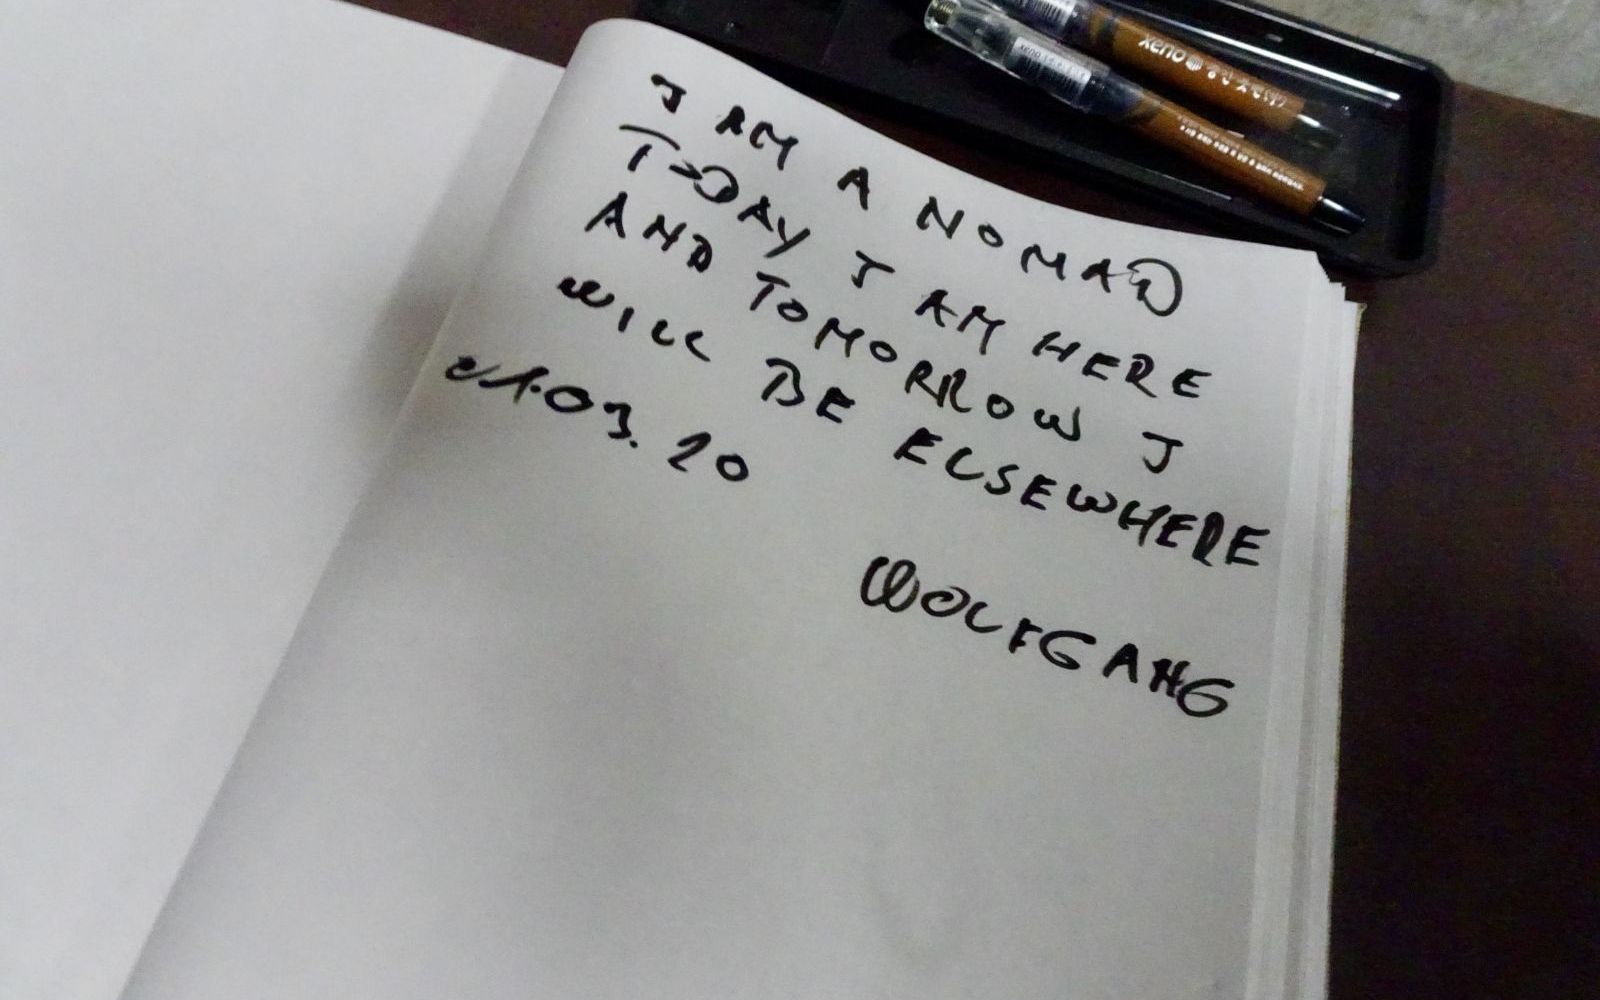 I AM A NOMAD
TODAY I AM HERE
AND TOMORROW I
WILL BE ELSEWHERE
21.03.20
WOLFGANG
xeno
xeno